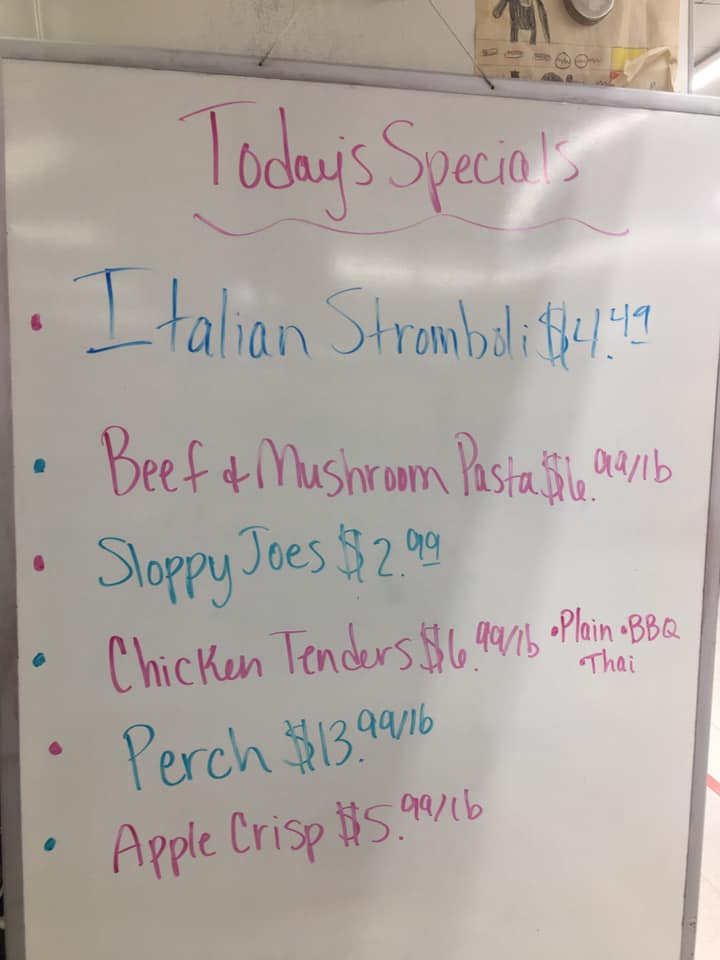 Today's Specials
• Italian Stromboli $4.49
• Beef & Mushroom Pasta $6.99/lb
• Sloppy Joes $2.99
• Chicken Tenders $6.99/lb •Plain •BBQ
•Thai
• Perch $13.99/lb
• Apple Crisp $5.99/lb